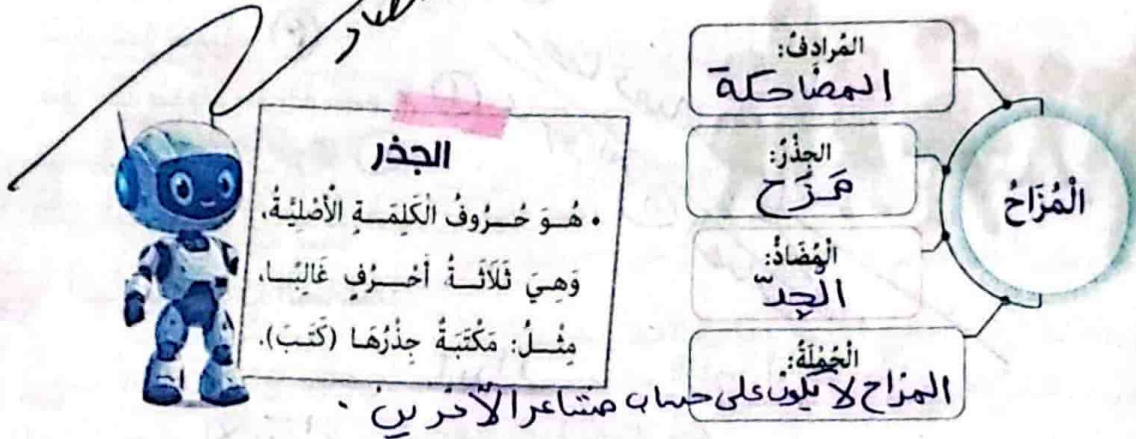 الْمُزَاحُ
المُرادِفُ:
المضاحكة
الجِذْرُ:
مَزَحَ
الْمُضَادُّ:
الجِدّ
الْجُمْلَةُ:
المزاح لا يكون على حساب مشاعر الآخرين .
الجذر
• هُوَ حُرُوفُ الْكَلِمَةِ الْأَصْلِيَّةُ،
وَهِيَ ثَلَاثَةُ أَحْرُفٍ غَالِبًا،
مِثْلُ: مَكْتَبَةُ جِذْرُهَا (كَتَبَ).